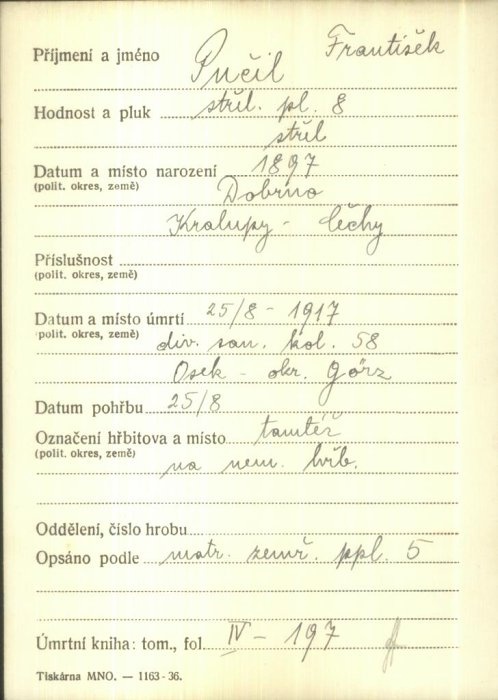 Příjmení a jméno Pučil František
Hodnost a pluk střel. pl. 8
střel
Datum a místo narození 1897
(polit. okres, země) Dobrno
Kralupy - Čechy
Příslušnost
(polit. okres, země)
Datum a místo úmrtí 25/8 - 1917
(polit. okres, země) div. san. kol. 58
Osek - okr. Görz
Datum pohřbu 25/8
Označení hřbitova a místo tamtéž
(polit. okres, země)
na nem. hřb.
Oddělení, číslo hrobu
Opsáno podle matr. zemř. ppl. 5
Úmrtní kniha: tom., fol. IV - 197
Tiskárna MNO. — 1163-36.